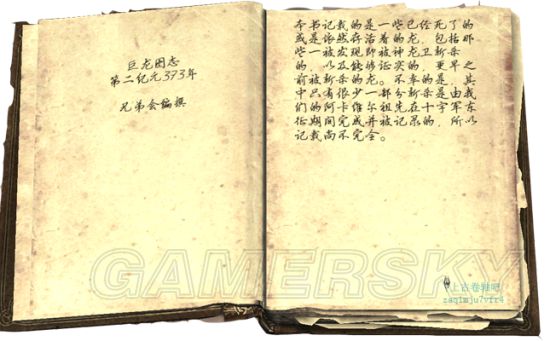 巨龙图志
第二纪元373年
兄弟会编撰
本书记载的是一些已经死了的
或是依然存活着的龙，包括那
些一被发现即被神龙卫斩杀
的，以及能够证实的，更早之
前被斩杀的龙。不幸的是，其
中只有很少一部分斩杀是由我
们的阿卡维尔祖先在十字军东
征期间完成并被记录的，所以
记载尚不完全。
GAMERSKY
上古卷轴吧
zaqimju7vfr4